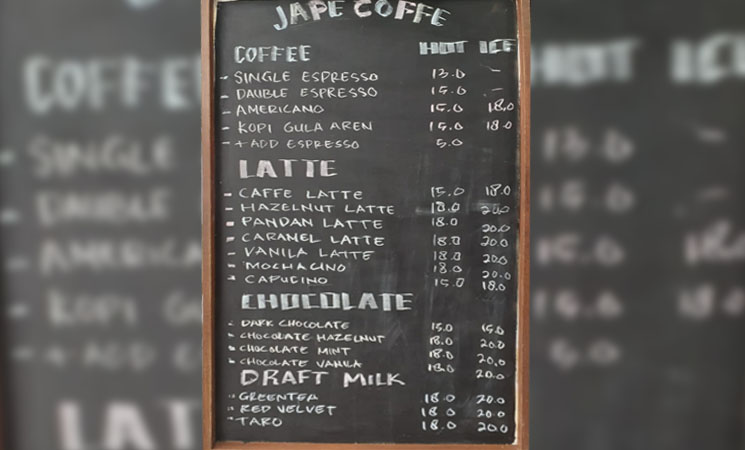 JAPE COFFE
COFFEE HOT ICE
- SINGLE ESPRESSO 13.0 -
- DAUBLE ESPRESSO 15.0 -
- AMERICANO 15.0 18.0
- KOPI GULA AREN 15.0 18.0
- + ADD ESPRESSO 5.0
LATTE
- CAFFE LATTE 15.0 18.0
- HAZELNUT LATTE 18.0 20.0
- PANDAN LATTE 18.0 20.0
- CARAMEL LATTE 18.0 20.0
- VANILA LATTE 18.0 20.0
- MOCHACINO 18.0 20.0
- CAPUCINO 15.0 18.0
CHOCOLATE
- DARK CHOCOLATE 15.0 15.0
- CHOCOLATE HAZELNUT 18.0 20.0
- CHOCOLATE MINT 18.0 20.0
- CHOCOLATE VANILA 18.0 20.0
DRAFT MILK
- GREENTEA 18.0 20.0
- RED VELVET 18.0 20.0
- TARO 18.0 20.0